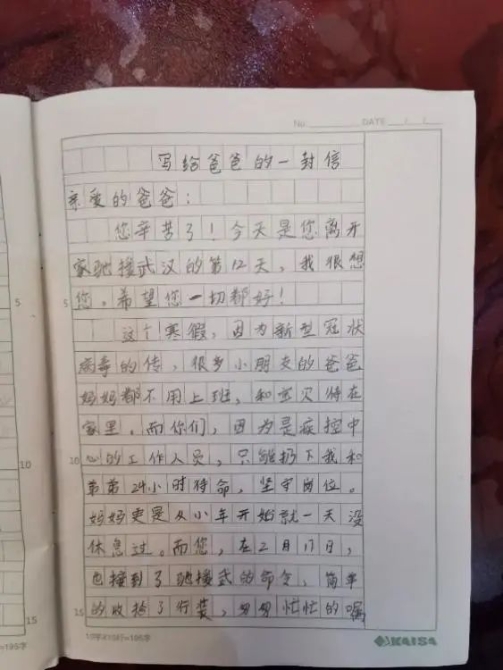 No. DATE / /
写给爸爸的一封信
亲爱的爸爸:
您辛苦了!今天是您离开
家驰援武汉的第12天,我很想
5 您。希望您一切都好!
这个寒假,因为新型冠状
病毒的传,很多小朋友的爸爸
妈妈都不用上班,和宝贝待在
家里。而你们,因为是疾控中
10 心的工作人员,只能扔下我和
弟弟24小时待命,坚守岗位。
妈妈更是从小年开始就一天没
休息过。而您,在2月17日,
也接到了驰援武的命令,简单
15 的收拾了行装,匆匆忙忙的嘱
5
10
15
KAISA